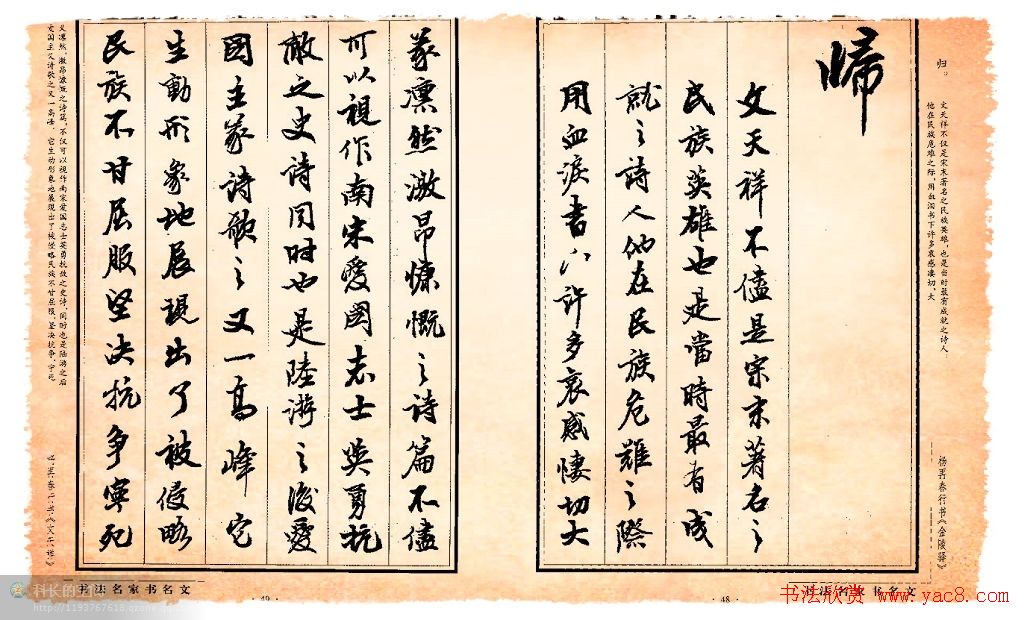 归。
文天祥不仅是宋末著名之民族英雄，也是当时最有成就之诗人。
他在民族危难之际，用血泪书下许多哀感凄切、大
杨再春行书《金陵驿》
归
文天祥不儘是宗末著名之
民族英雄也是當時最有成
就之诗人他在民族危難之際
用血淚書下許多哀感悽切大
书法名家书名文
·48·
義凛然激昂慷慨之詩篇不儘
可以視作南宋愛國志士英勇抗
敵之史诗同时也是陸游之後愛
國主義詩歌之又一高峰它
生動形象地展現出了被侵略
民族不甘屈服坚决抗争寧死
义凛然、激昂慷慨之诗篇。不仅可以视作南宋爱国志士英勇抗敌之史诗，同时也是陆游之后
爱国主义诗歌之又一高峰。它生动形象地展现出了被侵略民族不甘屈服、坚决抗争、宁死
书法名家书名文
·49·
科长的空间
http://1193767618.qzone.qq.com
书法欣赏 www.yac8.com